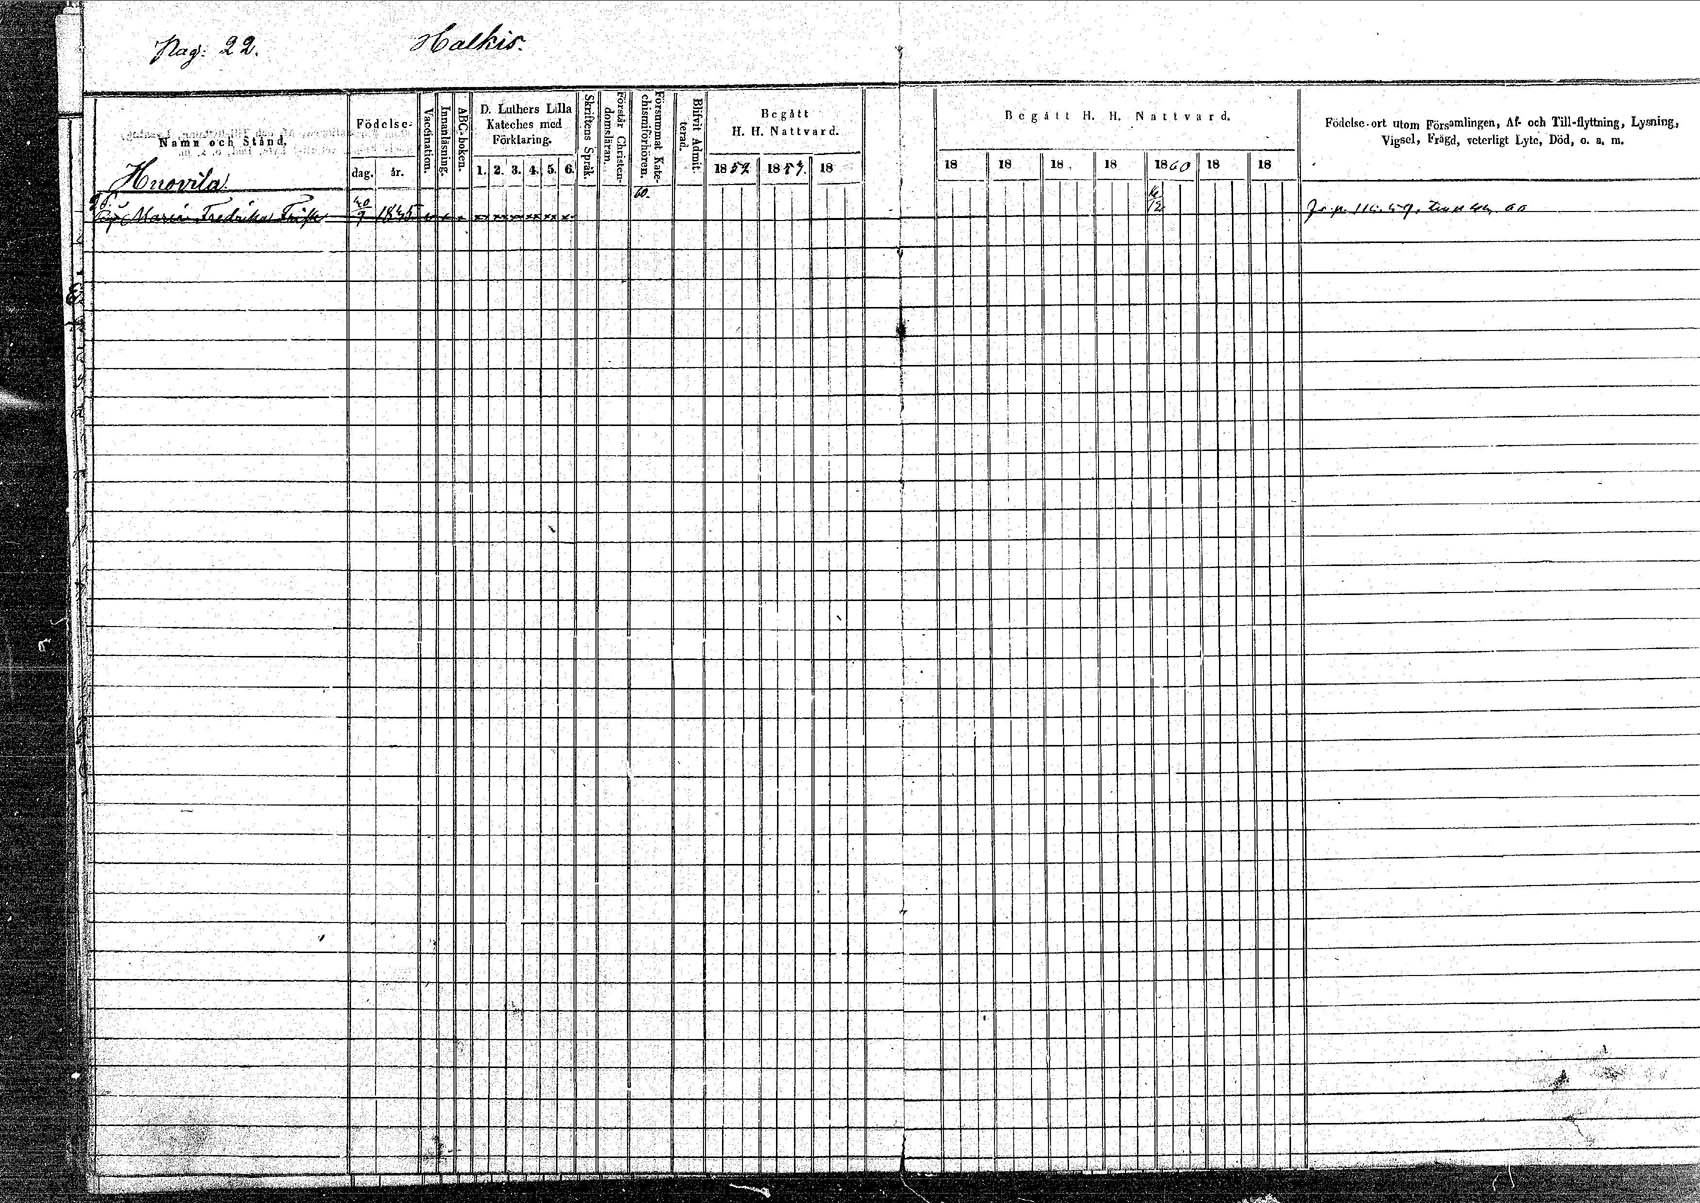 Pag: 22. Halkis.
Namn och Stånd.
Födelse-
dag. år.
Vaccination.
Innanläsning.
ABC-boken.
D. Luthers Lilla
Kateches med
Förklaring.
1. 2. 3. 4. 5. 6.
Skriftens Språk
Förstår Christen-
domsläran.
Försummat Kate-
chismiförhören.
Blifvit Admit-
terad.
Begått
H. H. Nattvard.
18 59 18 18
Begått H. H. Nattvard.
18 18 18 18 1860 18 18
Födelse-ort utom Församlingen, Af- och Till-flyttning, Lysning,
Vigsel, Frägd, veterligt Lyte, Död, o. a. m.
Knovila
60.
Maria Fredrika 1845